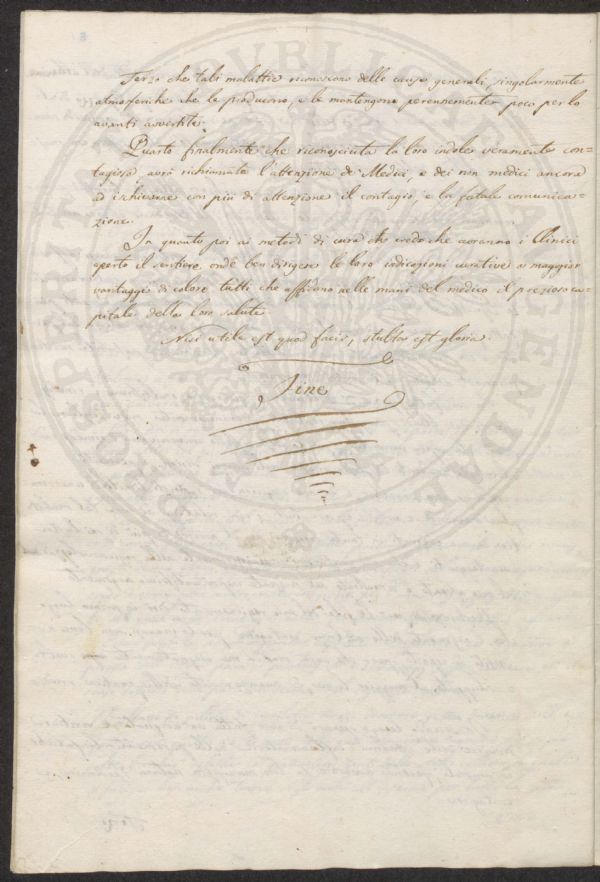 Terzo che tali malattie riconoscono delle cause generali, singolarmente
atmosferiche che le producono, e le mantengono perennemente poco per lo
avanti avvertite.
Quarto finalmente che riconosciuta la loro indole veramente con-
tagiosa avrà richiamata l'attenzione de' Medici, e dei non medici ancora
ad ischivarne con più di attenzione il contagio, e la fatale comunica-
zione.
In quanto poi ai metodi di cura credo che avranno i Clinici
aperto il sentiero, onde ben dirigere le loro indicazioni curative a maggior
vantaggio di coloro tutti che affidano nelle mani del medico il prezioso ca-
pitale della loro salute
Nisi utile est quod facis, stulta est gloria.
Fine
PROSPERITATI PUBLICAE AUGENDAE